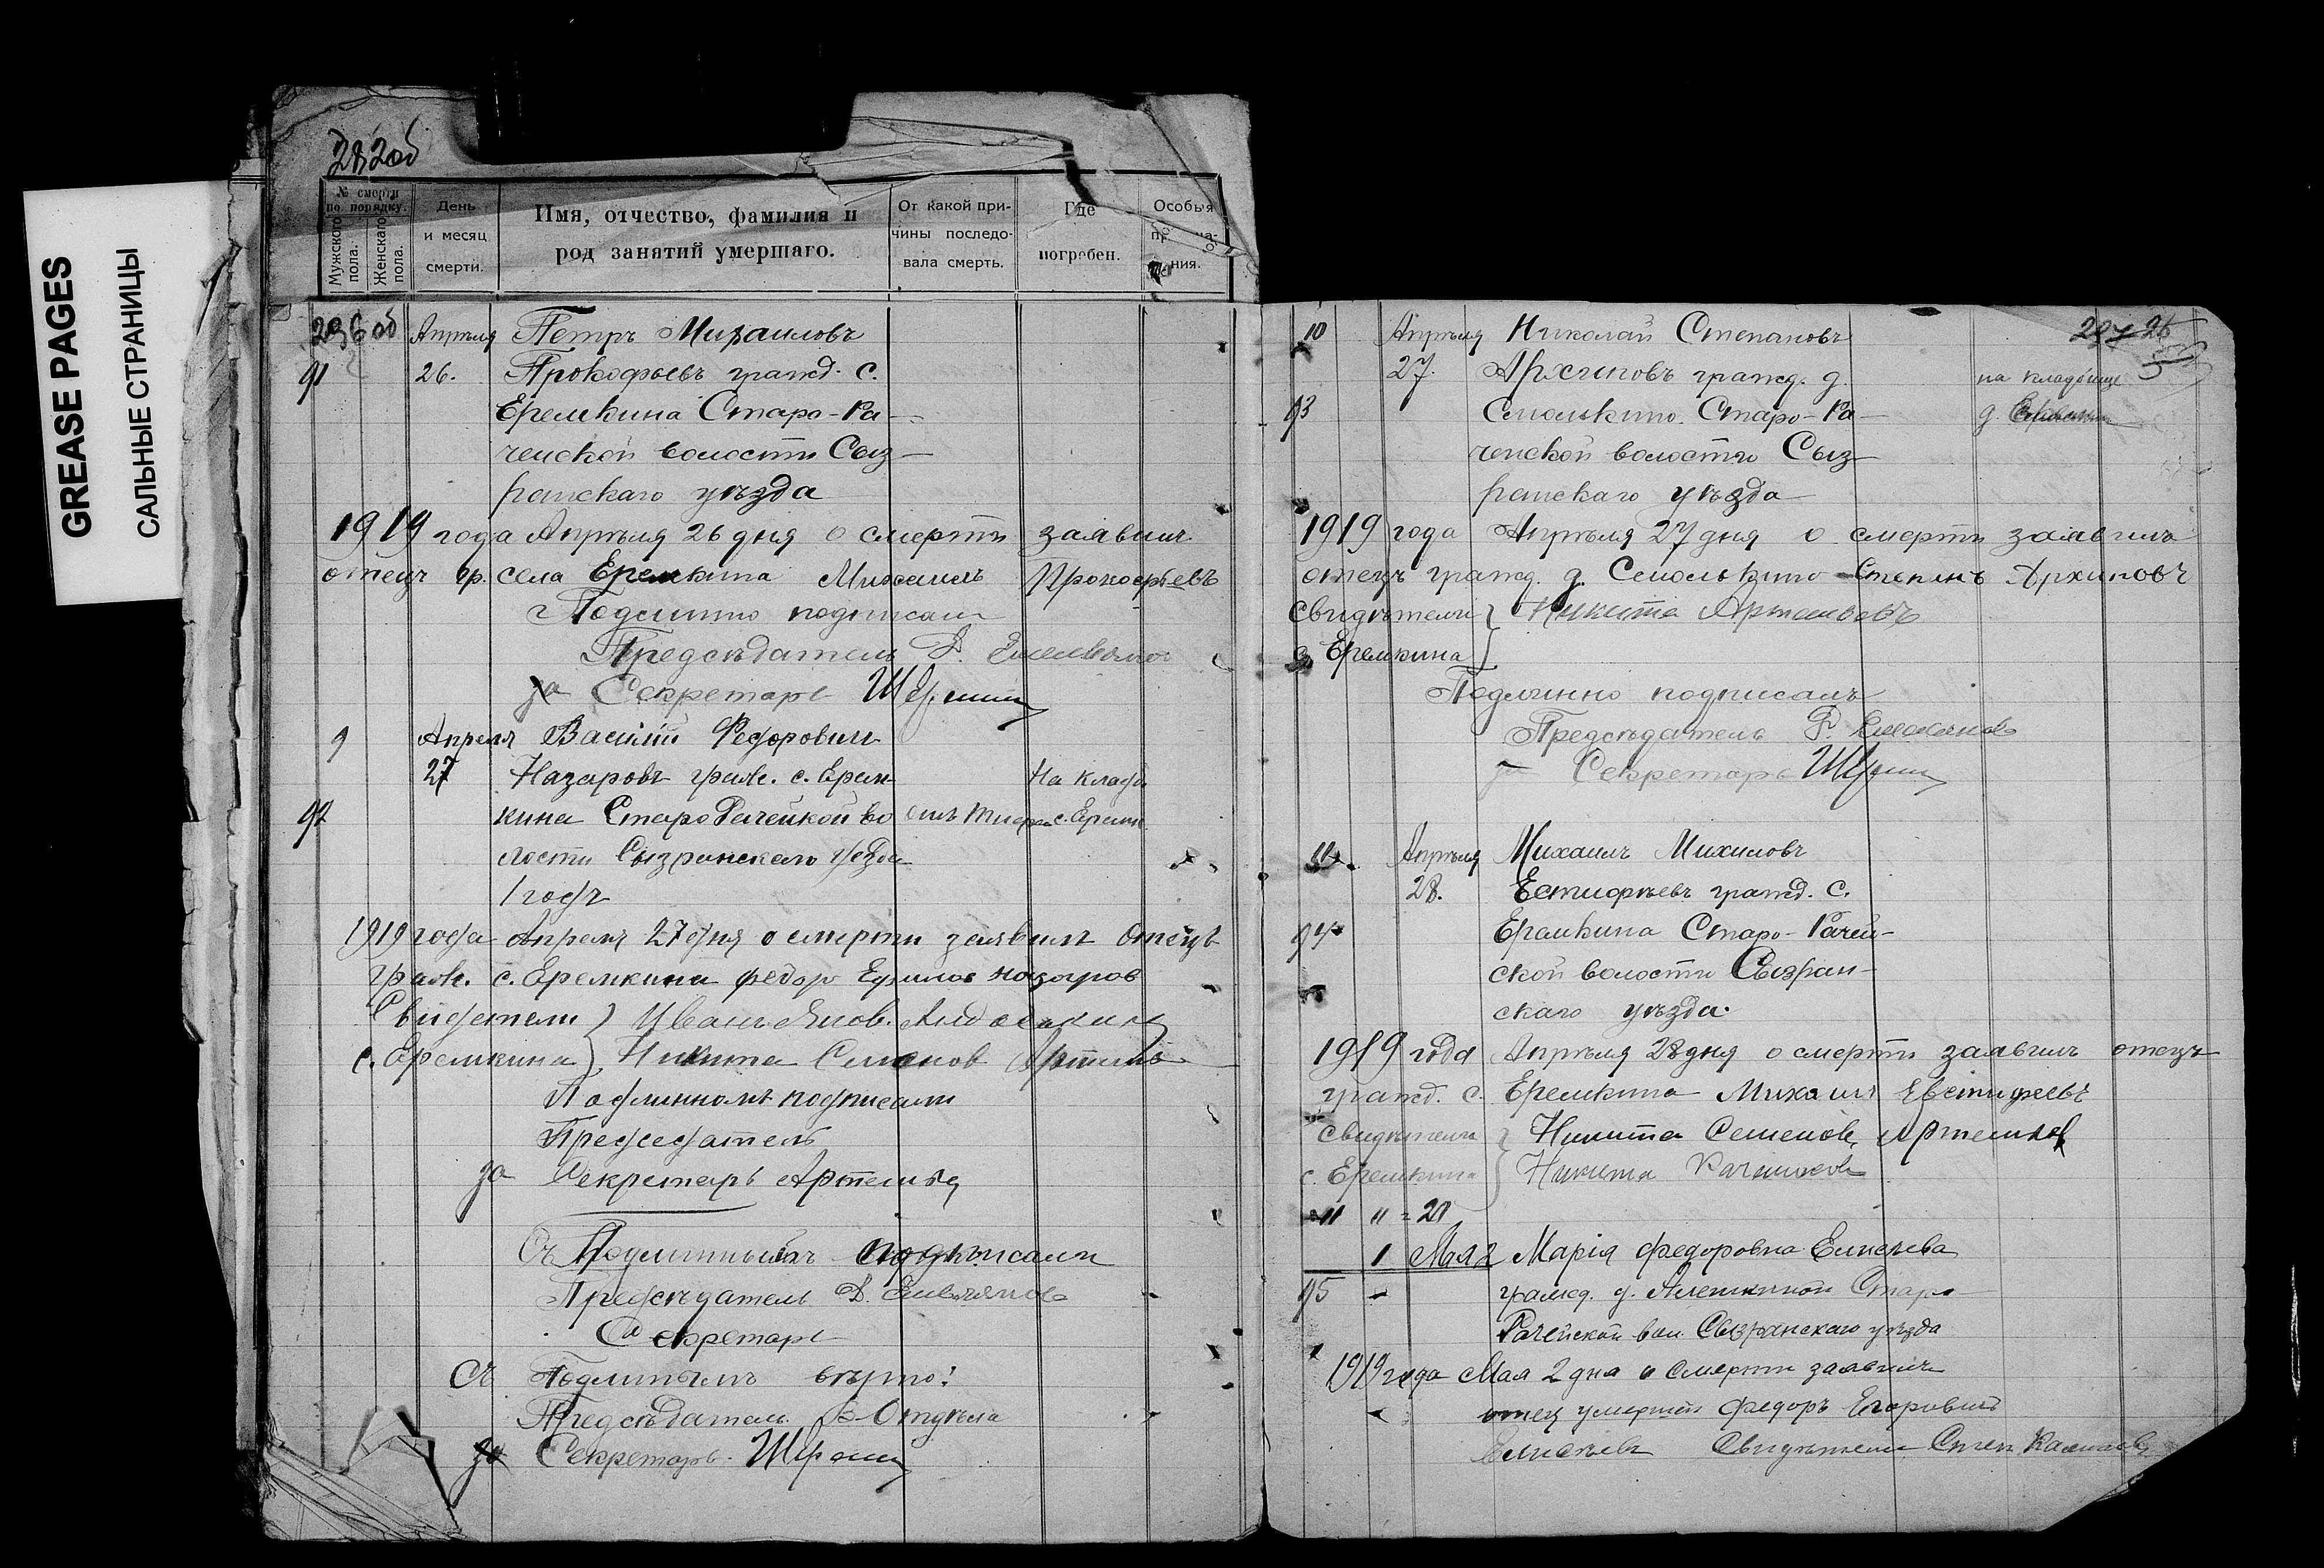 GREASE PAGES
САЛЬНЫЕ СТРАНИЦЫ
282об
№ смерти по порядку.
Мужского пола.
Женскаго пола.
День и месяц смерти.
Имя, отчество, фамилия и род занятий умершаго.
От какой причины последовала смерть.
Где погребен.
Особыя
ния.
296об Апрѣля Петръ Михаиловъ
91 26. Прокофьевъ гражд. с.
Еремкина Старо-Ра-
чейской волости Сыз-
ранскаго уѣзда
1919 года Апрѣля 26 дня о смерти заявилъ
отецъ гр. села Еремкина Михаилъ Прокофьевъ
Подлинно подписали
Предсѣдатель
за Секретаръ
9 Апреля Василий Федорович
27 Назаровъ граж. с. Ерем На кладб.
92 кина Старо Рачейкой во с. Еремк.
лости Сызранскаго уезда
1 годъ
1919 года апреля 27 дня о смерти заявилъ отецъ
граж. с. Еремкина федор Ефимов назаров
Свидетели } Иванъ Яков.
с. Еремкина } Никита Семенов Артемьев
Подлинномъ подписали
Председатель
за Секретарь Артемьев
Съ Подлиннымъ подписали
Предсѣдатель
Секретарь
Съ Подлинымъ вѣрно:
Предсѣдатель Отдѣла
за Секретарь
10 Апрѣля Николай Степановъ 297 26
27. Архиповъ гражд. д. на кладбище
93 Смолькино Старо-Ра- д.
чейской волости Сыз-
ранскаго уѣзда
1919 года Апрѣля 27 дня о смерти заявилъ
отецъ гражд. д. Смолькино Степанъ Архиповъ
Свидѣтели } Никита Артемьевъ
с. Еремкина }
Подлинно подписалъ
Предсѣдатель
за Секретарь
11 Апрѣля Михаилъ Михаиловъ
28. Естифѣевъ гражд. с.
94 Еремкина Старо-Рачей-
ской волости Сызран-
скаго уѣзда.
1919 года Апрѣля 28 дня о смерти заявилъ отецъ
гражд. с. Еремкина Михаилъ Евстифеевъ
Свидѣтели } Никита Семенов. Артемьев
с. Еремкина } Никита
1 Мая 2 Марія Федоровна Елисѣева
95 - гражд. д. Алешкиной Старо
Рачейской вол. Сызранскаго уѣзда
1919 года Мая 2 дня о смерти заявилъ
отец умершей Федоръ Егоровичъ
Елисѣевъ Свидѣтели Степ.